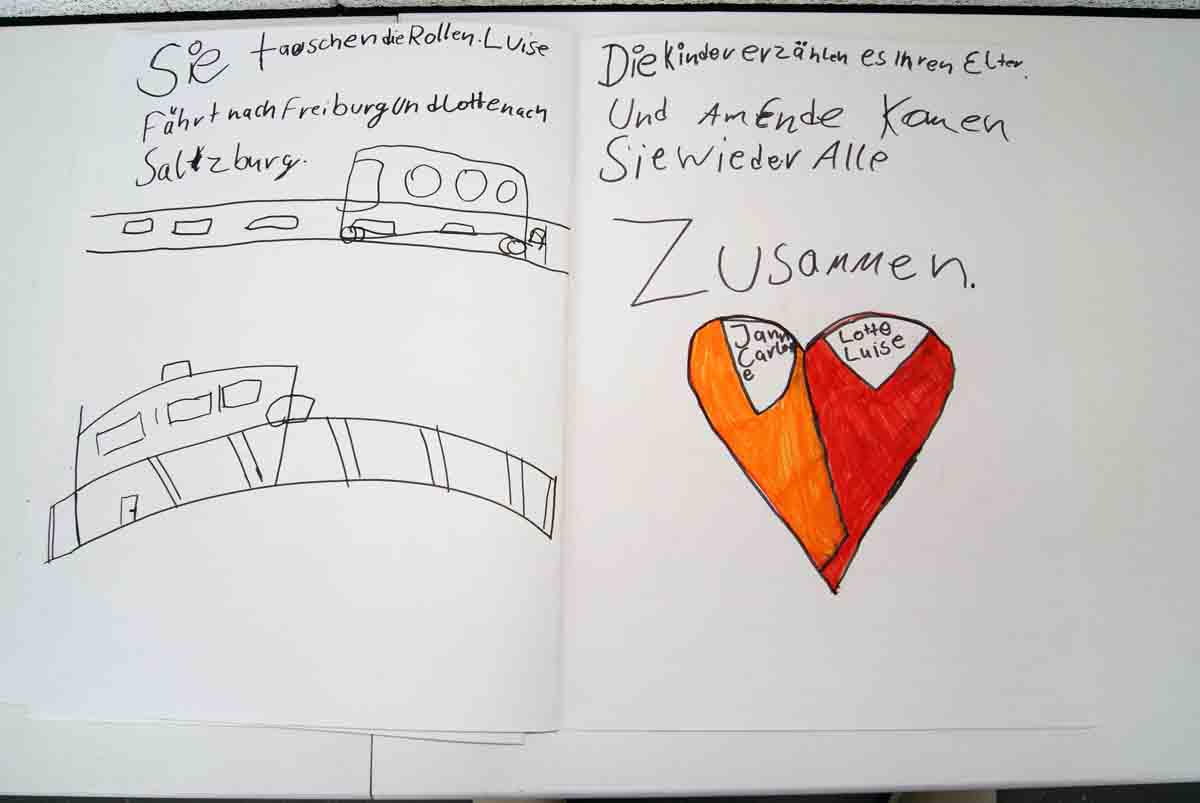 Sie tauschen die Rollen. Luise
Fährt nach Freiburg Und Lotte nach
Saltzburg.
Die Kinder erzählen es Ihren Elter.
Und Am Ende Kamen
Sie wieder Alle
Zusammen.
Jann
Carlot
e
Lotte
Luise